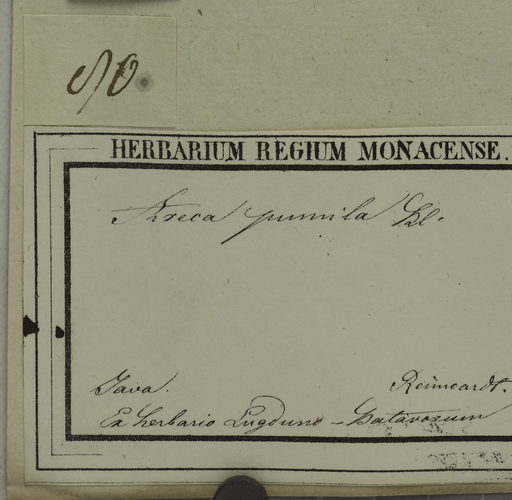 HERBARIUM REGIUM MONACENSE.
Areca pumila Bl.
Java. Reinwardt.
Ex herbario Lugduno-Batavorum